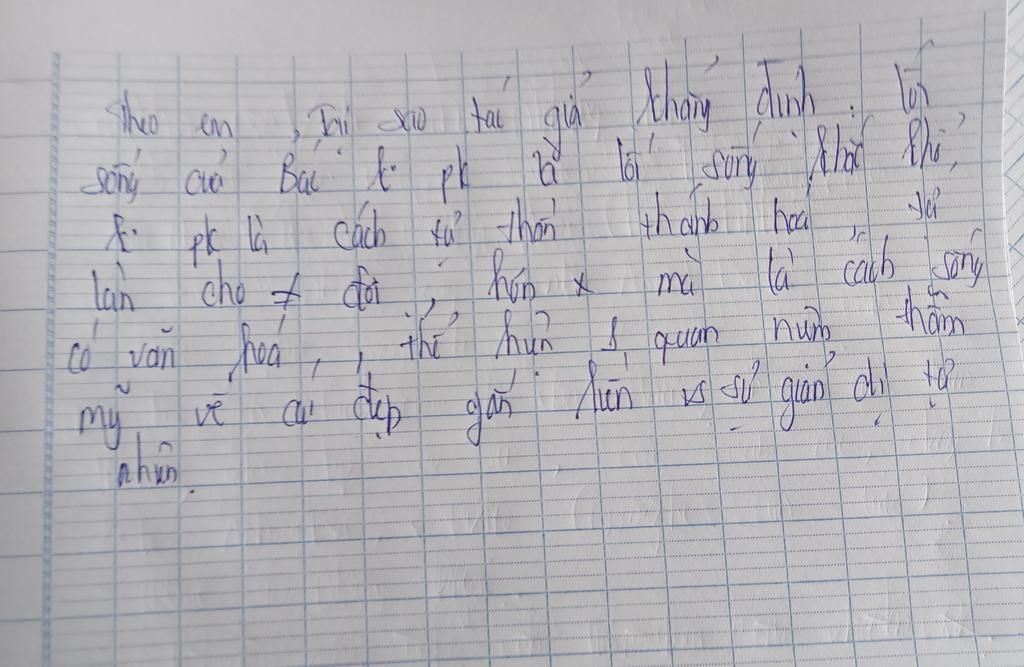 Theo em, Tại sao tác giả khẳng định: lối
sống của Bác k. pk là lối sống khắc khổ,
k. pk là cách tự thần thánh hoá, tự
làm cho ≠ đời, hơn x mà là cách sống
có văn hoá, , thể hiện 1 quan niệm thẩm
mỹ về cái đẹp gắn liền vs sự giản dị tự
nhiên.